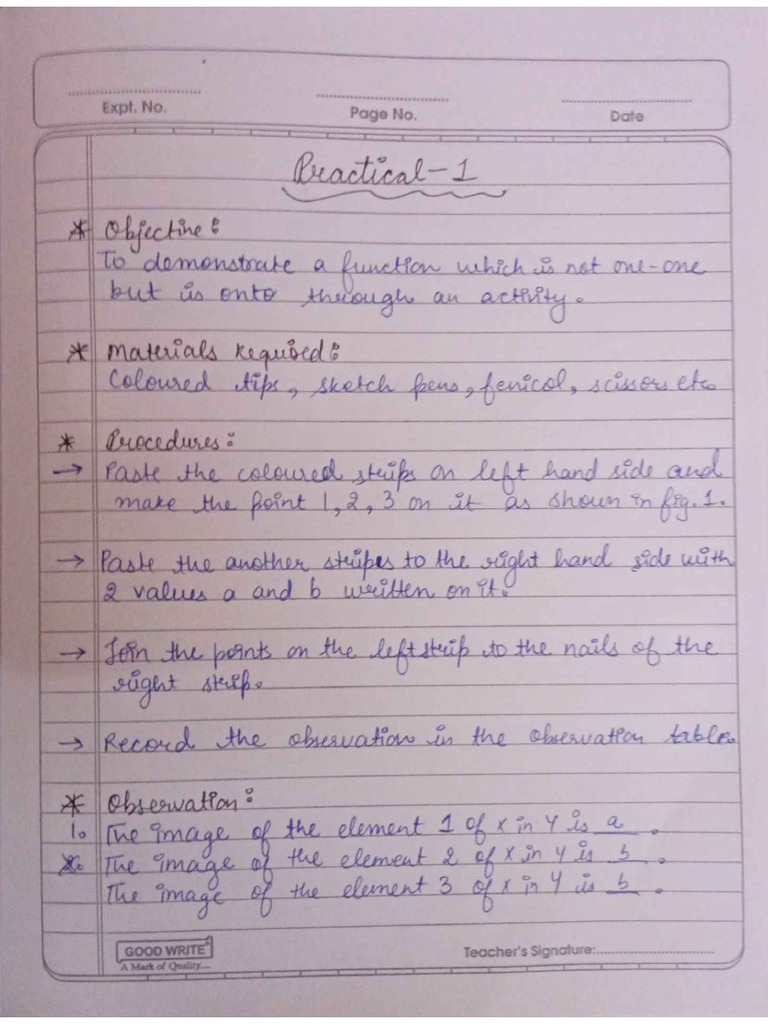 Expt. No.
Page No.
Date
Practical-1
* Objective:
To demonstrate a function which is not one-one
but is onto through an activity.
* Materials Required:
Coloured tips, sketch pens, fenicol, scissors etc.
* Procedures:
→ Paste the coloured strips on left hand side and
make the point 1, 2, 3 on it as shown in fig. 1.
→ Paste the another stripes to the right hand side with
2 values a and b written on it.
→ Join the points on the left strip to the nails of the
right strip.
→ Record the observation in the observation table.
* Observation:
1. The image of the element 1 of x in y is a.
The image of the element 2 of x in y is b.
The image of the element 3 of x in y is b.
GOOD WRITE
A Mark of Quality....
Teacher's Signature: